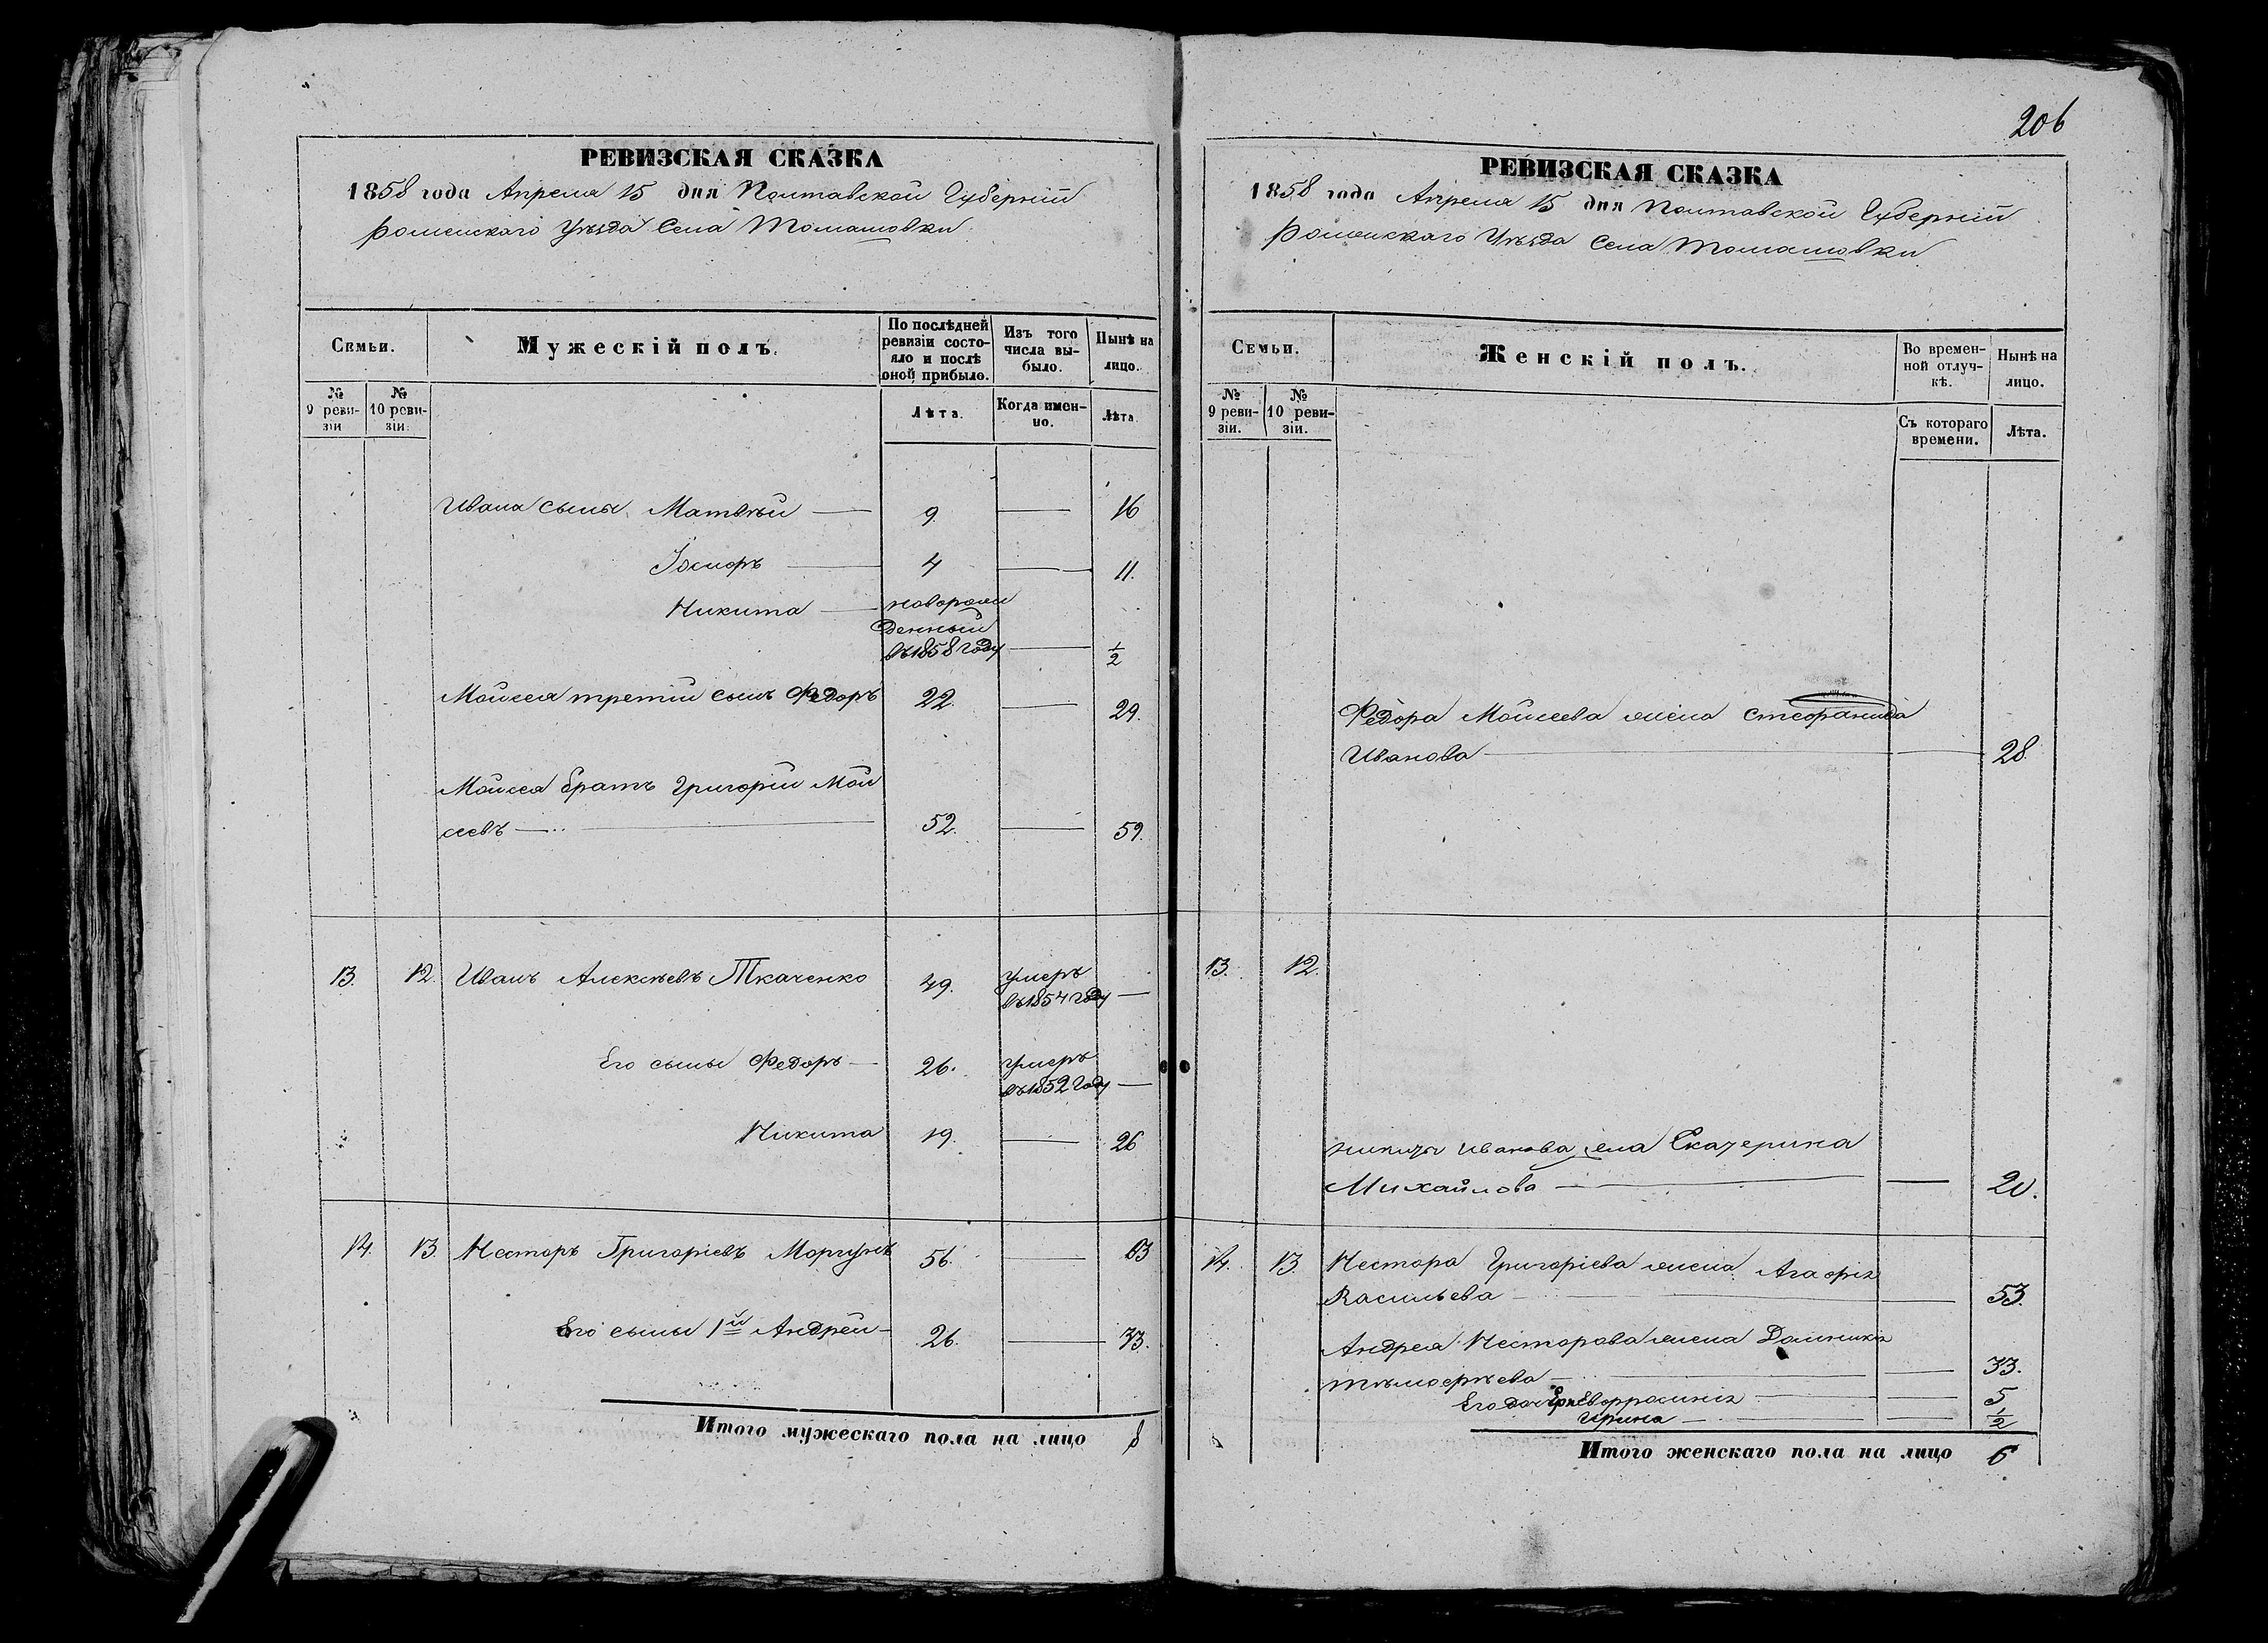 206
РЕВИЗСКАЯ СКАЗКА
1858 года Апреля 15 дня Полтавской Губерніи
Роменскаго Уѣзда Села Томашовки
Семьи.
Мужескій полъ.
По послѣдней ревизіи состояло и послѣ оной прибыло.
Изъ того числа выбыло.
Нынѣ на лицо.
№ 9 ревизіи
№ 10 ревизіи.
Лѣта.
Когда именно.
Лѣта
Ивана сыны Матвѣй — 9. — 16
4 — 11.
Никита — новорож
денный
въ 1858 году — 1/2
Моисея третій сынъ Федоръ 22. — 29.
Моисея братъ Григорій Мои
сеевъ — 52. — 59.
13. 12. Иванъ Алексѣевъ Ткаченко 49. умеръ
въ 1854 году —
Его сыны Федоръ — 26. умеръ
въ 1852 году —
Никита 19. — 26
14. 13. Несторъ Григоріевъ Моргунъ 56. — 63
Его сыны 1й Андрей — 26. — 33.
Итого мужескаго пола на лицо 8
РЕВИЗСКАЯ СКАЗКА
1858 года Апреля 15 дня Полтавской Губерніи
Роменскаго Уѣзда Села Томашовки
Семьи.
Женскій полъ.
Во временной отлучкѣ.
Нынѣ на лицо.
№ 9 ревизіи.
№ 10 ревизіи.
Съ котораго времени.
Лѣта.
Федора Моисеева жена Стефанида
Иванова — 28.
13. 12.
Никиты Иванова жена Екатерина
Михайлова — 20.
14. 13. Нестора Григоріева жена Агафія
Васильева — 53.
Андрея Несторова жена Домникія
Тимофѣева — 33.
Его дочери Евфросинія — 5
Ирина — 1/2
Итого женскаго пола на лицо 6